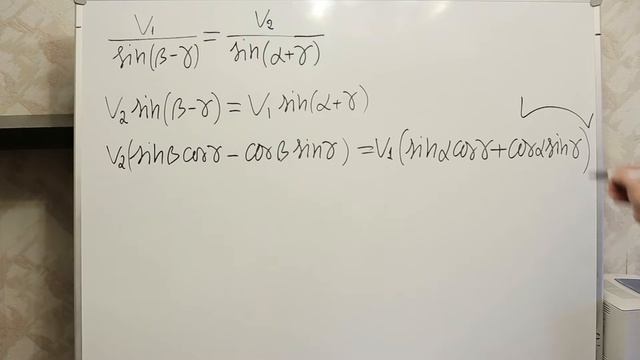 V₁/sin(β-γ) = V₂/sin(α+γ)
V₂ sin(β-γ) = V₁ sin(α+γ)
V₂(sinβ cosγ - cosβ sinγ) = V₁(sinα cosγ + cosα sinγ)